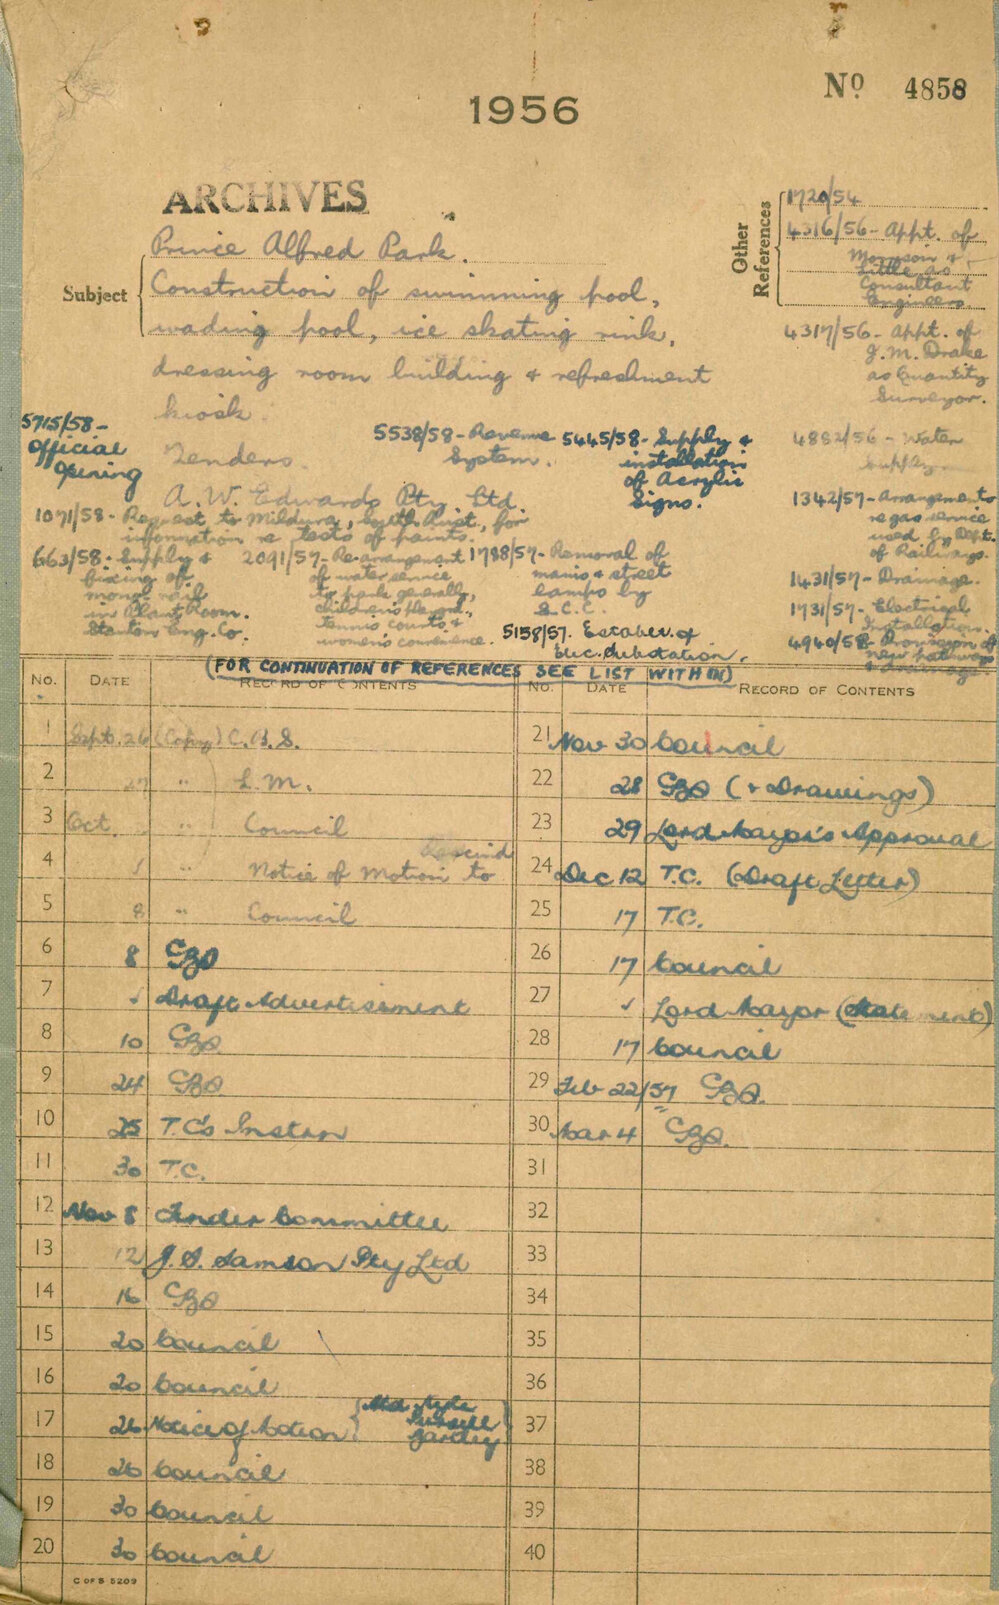 1956
No 4858
ARCHIVES
Subject
Prince Alfred Park.
Construction of swimming pool,
wading pool, ice skating rink,
dressing room building & refreshment
kiosk.
Tenders.
A. W. Edwards Pty Ltd
Other References
1720/54
4316/56 - Appt. of
Morrison &
Little as
Consultant
Engineers.
4317/56 - Appt. of
J. M. Drake
as Quantity
Surveyor.
4882/56 - Water
Supply.
1342/57 - Arrangements
re gas service
used by Dept.
of Railways.
1431/57 - Drainage.
1731/57 - Electrical
Installation.
4940/58 - Provision of
new pathways
& drainage.
5715/58 -
Official
Opening
5538/58 - Revenue
System.
5445/58 - Supply &
installation
of Acrylic
Signs.
1071/58 - Request to Mildura, South Aust., for
information re tests of paints.
663/58 - Supply &
fixing of
mono rail
in Plant Room.
Stanton Eng. Co.
2091/57 - Re-arrangement
of water service
to park generally,
children's playgd.,
tennis courts &
women's convenience.
1788/57 - Removal of
mains & street
lamps by
S.C.C.
5158/57. Estab. of
Elec. Substation.
(FOR CONTINUATION OF REFERENCES SEE LIST WITHIN)
No. DATE RECORD OF CONTENTS
1 Sept. 26 (Copy) C.B.S.
2 27 " L.M.
3 Oct. " Council
4 " Notice of Motion to Rescind
5 8 " Council
6 8 CBS
7 ✓ Draft Advertisement
8 10 CBS
9 24 CBS
10 25 T.C's Instrn
11 30 T.C.
12 Nov 8 Tender Committee
13 12 J. S. Samson Pty Ltd
14 16 CBS
15 20 Council
16 20 Council
17 26 Notice of Motion { Ald. Kyle Pursell }
18 26 Council
19 30 Council
20 30 Council
C OF S 5209
No. DATE RECORD OF CONTENTS
21 Nov 30 Council
22 28 CBS (& Drawings)
23 29 Lord Mayor's Approval
24 Dec 12 T.C. (Draft Letter)
25 17 T.C.
26 17 Council
27 ✓ Lord Mayor (Statement)
28 17 Council
29 Feb 22/57 CBS.
30 Mar 4 " CBS.
31
32
33
34
35
36
37
38
39
40